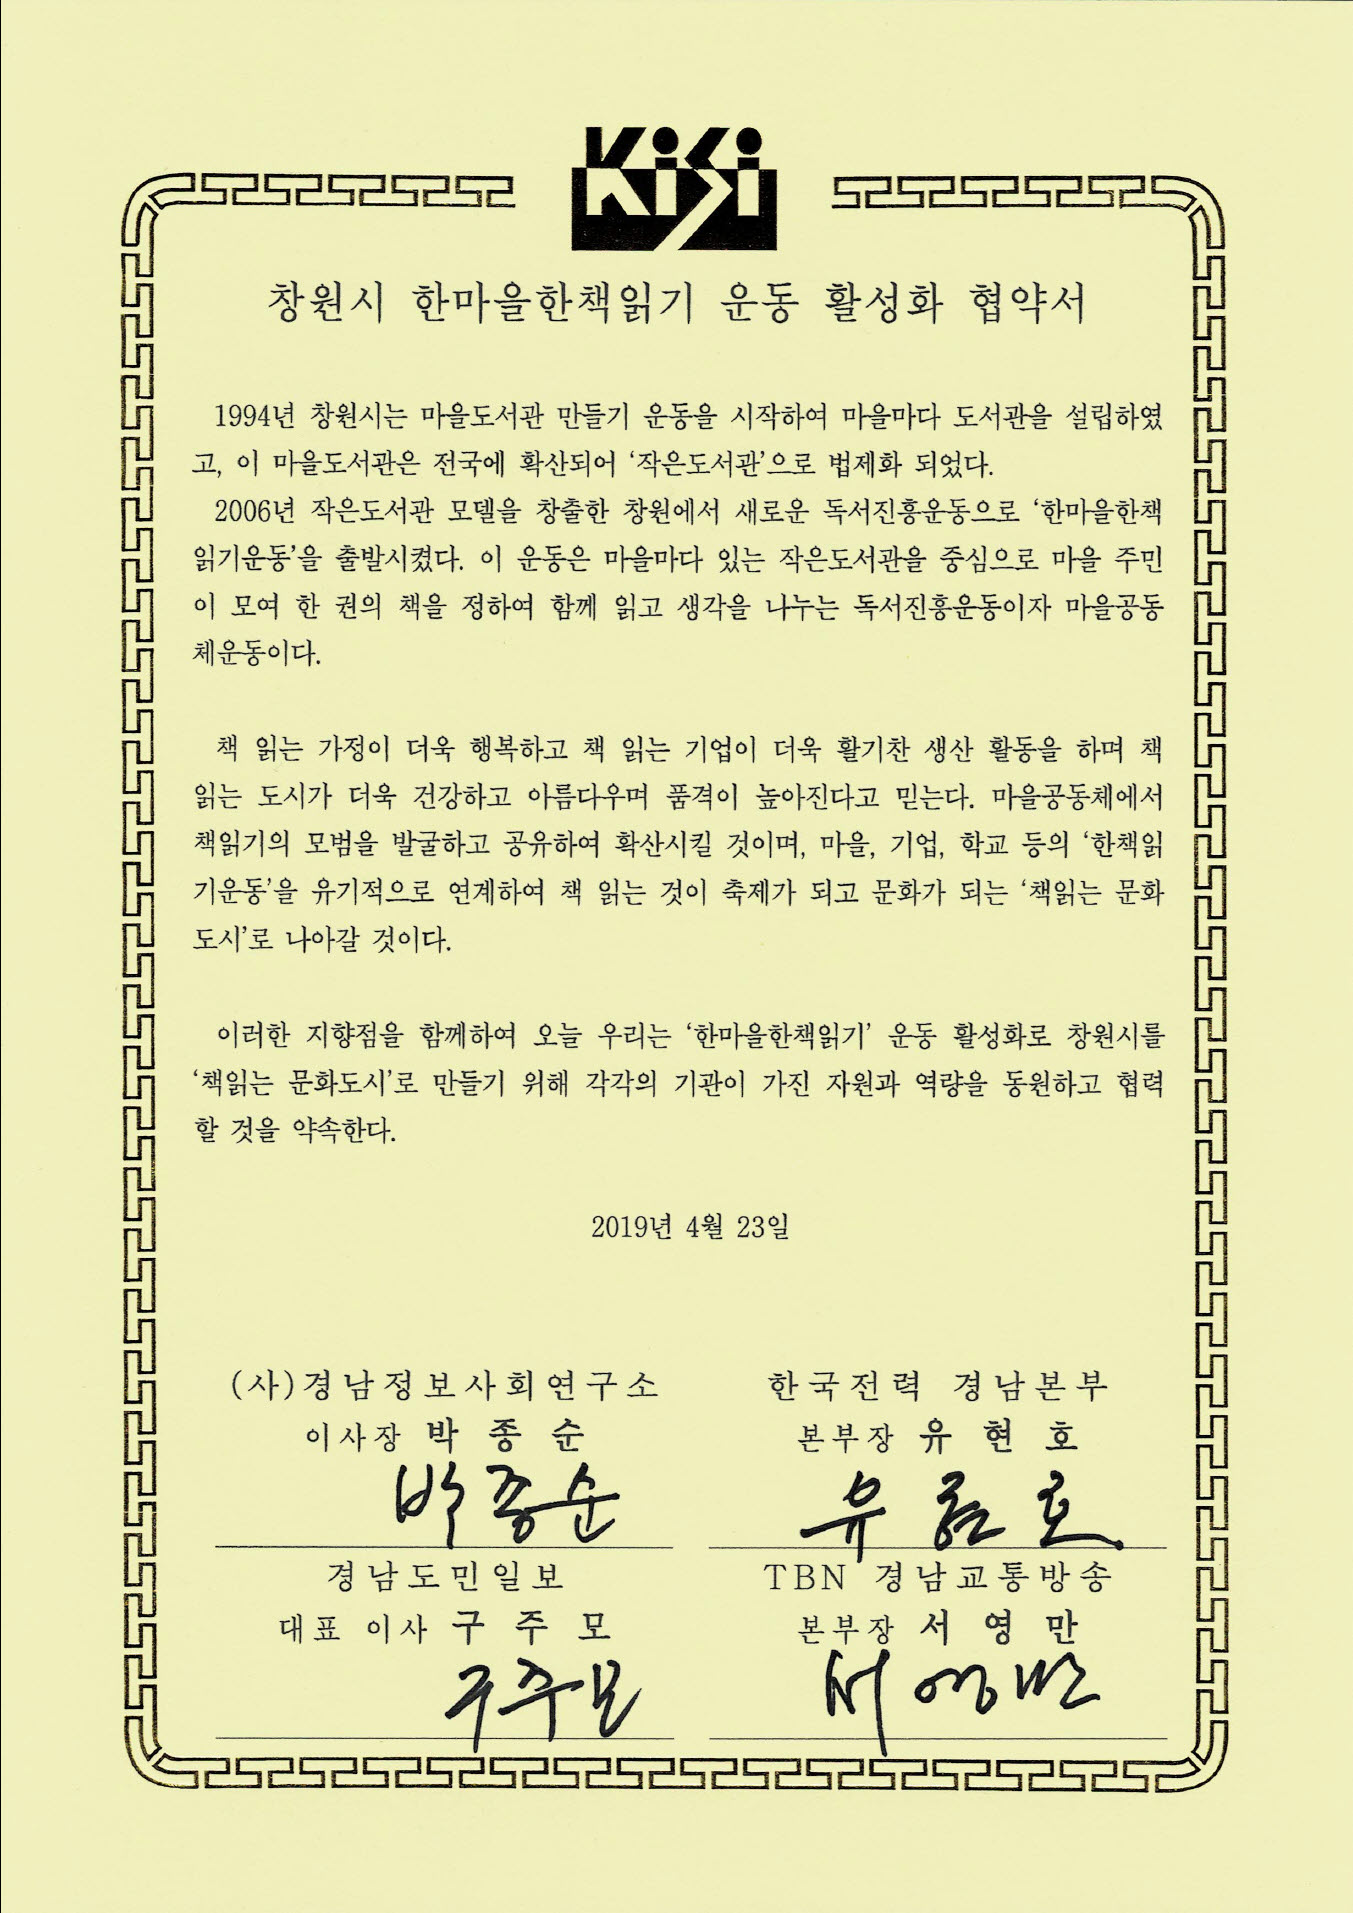 KiSi
창원시 한마을한책읽기 운동 활성화 협약서
1994년 창원시는 마을도서관 만들기 운동을 시작하여 마을마다 도서관을 설립하였
고, 이 마을도서관은 전국에 확산되어 ‘작은도서관’으로 법제화 되었다.
2006년 작은도서관 모델을 창출한 창원에서 새로운 독서진흥운동으로 ‘한마을한책
읽기운동’을 출발시켰다. 이 운동은 마을마다 있는 작은도서관을 중심으로 마을 주민
이 모여 한 권의 책을 정하여 함께 읽고 생각을 나누는 독서진흥운동이자 마을공동
체운동이다.
책 읽는 가정이 더욱 행복하고 책 읽는 기업이 더욱 활기찬 생산 활동을 하며 책
읽는 도시가 더욱 건강하고 아름다우며 품격이 높아진다고 믿는다. 마을공동체에서
책읽기의 모범을 발굴하고 공유하여 확산시킬 것이며, 마을, 기업, 학교 등의 ‘한책읽
기운동’을 유기적으로 연계하여 책 읽는 것이 축제가 되고 문화가 되는 ‘책읽는 문화
도시’로 나아갈 것이다.
이러한 지향점을 함께하여 오늘 우리는 ‘한마을한책읽기’ 운동 활성화로 창원시를
‘책읽는 문화도시’로 만들기 위해 각각의 기관이 가진 자원과 역량을 동원하고 협력
할 것을 약속한다.
2019년 4월 23일
(사)경남정보사회연구소
이사장 박 종 순
박종순
한국전력 경남본부
본부장 유 현 호
유현호
경남도민일보
대표 이사 구 주 모
구주모
TBN 경남교통방송
본부장 서 영 만
서영만